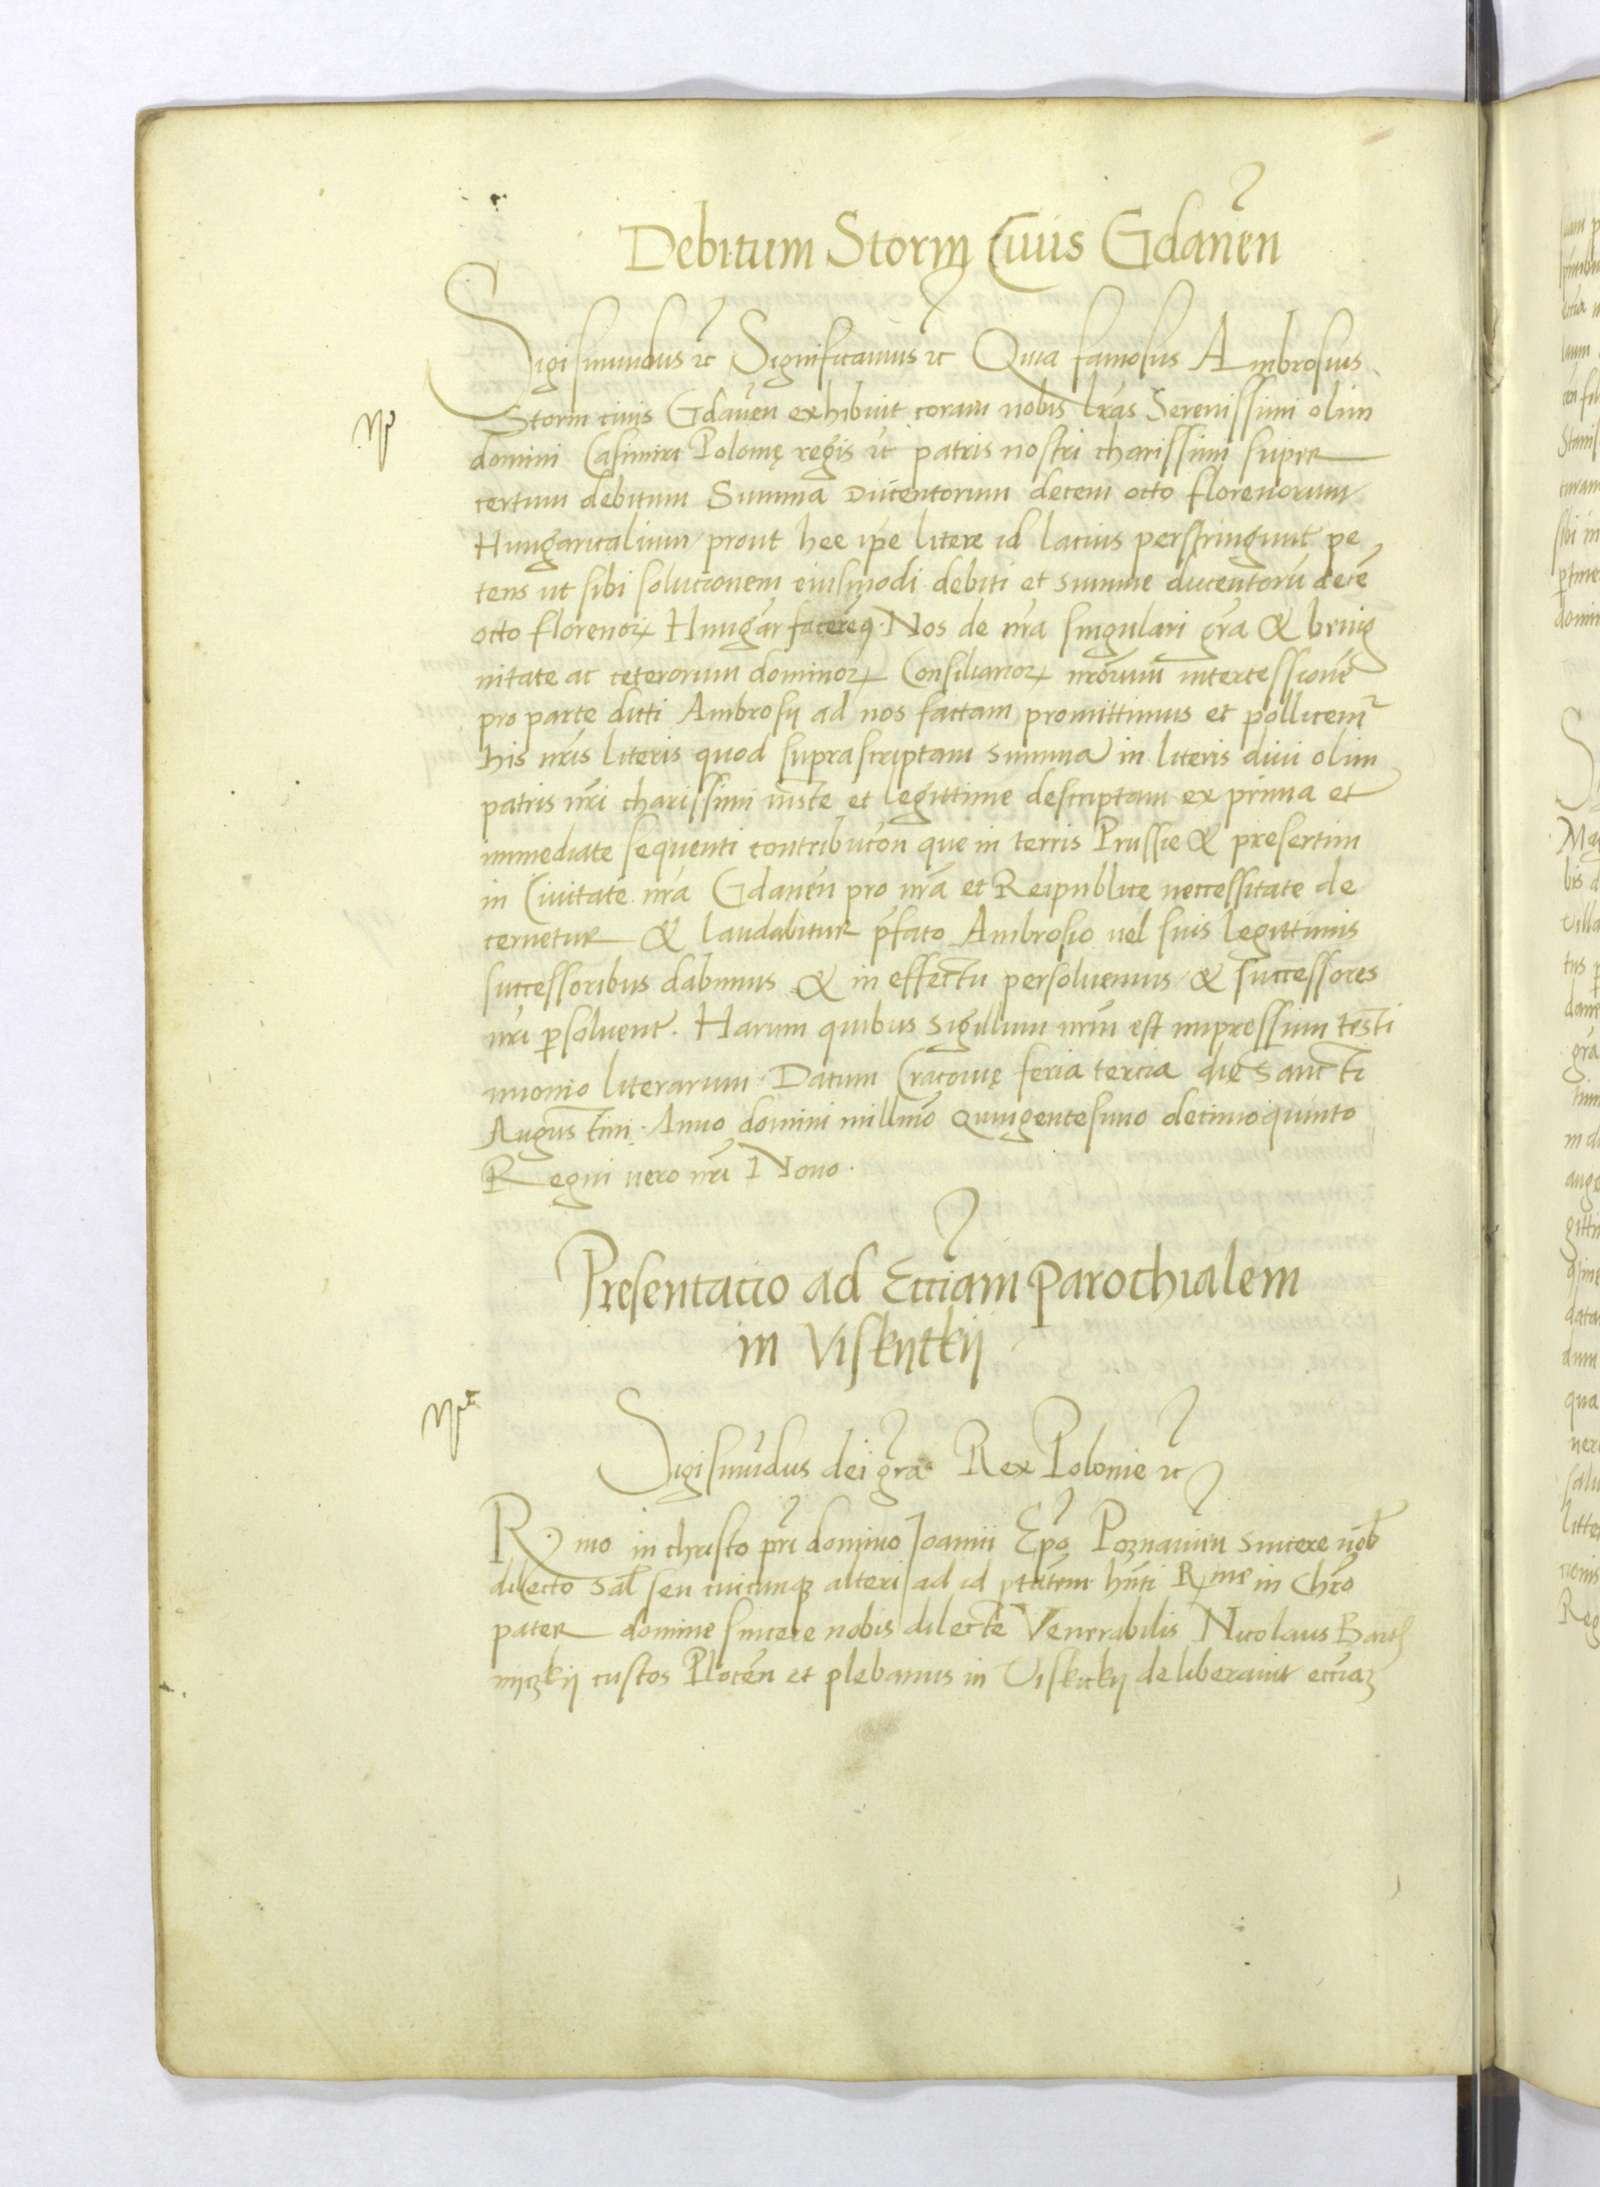 Debitum Storm Civis Gdanen̄
Sigismundus ec Significamus ec Quia famosus Ambrosius
Storm civis Gdanen exhibuit coram nobis lr̃as Serenissimi olim
domini Casimiri Polonię regis ec patris nostri charissimi super
certum debitum Summa Ducentorum decem octo florenorum
Hungaricalium prout hee ip̃e litere id lacius perstringunt pe
tens ut sibi solucionem eiusmodi debiti et summe ducentorũ decẽ
octo florenoꝝ Hungar̃ facereꝗ. Nos de nr̃a singulari gr̃a & benig
nitate ac ceterorum dominoꝝ Consiliarioꝝ nr̃orum intercessionẽ
pro parte dicti Ambrosij ad nos factam promittimus et pollicem̃
his nr̃is literis quod suprascriptam summã in literis divi olim
patris nr̃i charissimi iuste et legittime descriptam ex prima et
immediate sequenti contribucõn que in terris Prussie & presertim
in Civitate nr̃a Gdanen̄ pro nr̃a et Reipublice neccessitate de
cernetur & laudabitur p̃fato Ambrosio vel suis legittimis
successoribus dabimus & in effectu persoluemus & successores
nr̃i ꝑsoluent. Harum quibus sigillum nr̃m est impressum testi
monio literarum. Datum Cracovię feria tercia die Sancti
Augustini. Anno domini millmõ quingentesimo decimoquinto
Regni vero nr̃i Nono.
Presentacio ad Eccĩam parochialem
in Viskÿtkij
Sigismũdus dei gr̃a Rex Polonie ec
Rmo in christo pr̃i domino Joanni Ep̃o Poznanien̄ sincere nob̃
dilecto Sal̃ seu cuicunqꝫ alteri ad id ptãtem hñti Rme in Chr̃o
pater domine sincere nobis dilecte Venerabilis Nicolaus Bart
nÿczkij custos Plocen̄ et plebanus in Viskitkij deliberavit eccĩaꝫ